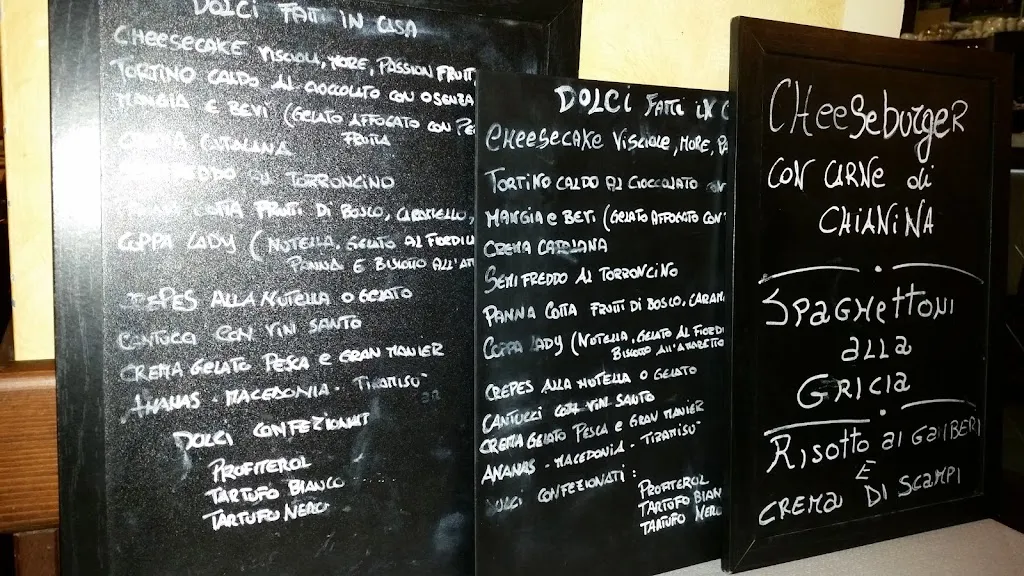 DOLCI FATTI IN CASA
CHEESECAKE VISCIOLI, MORE, PASSION FRUIT
TORTINO CALDO AL CIOCCOLATO CON O SENZA
MANGIA E BEVI (GELATO AFFOGATO CON
FRUTTA
CREMA CATALANA
SEMIFREDDO AL TORRONCINO
PANNA COTTA FRUTTI DI BOSCO, CARAMELLO,
COPPA LADY (NUTELLA, GELATO AL FIORDI
PANNA E BISCOTTO ALL'
CREPES ALLA NUTELLA O GELATO
CANTUCCI CON VIN SANTO
CREMA GELATO PESCA E GRAN MANIER
ANANAS - MACEDONIA - TIRAMISU'
DOLCI CONFEZIONATI
PROFITEROL
TARTUFO BIANCO
TARTUFO NERO
DOLCI FATTI IN C
CHEESECAKE VISCIOLE, MORE, PA
TORTINO CALDO AL CIOCCOLATO CON
MANGIA E BEVI (GELATO AFFOGATO CON
CREMA CATALANA
SEMIFREDDO AL TORRONCINO
PANNA COTTA FRUTTI DI BOSCO, CARAM
COPPA LADY (NUTELLA, GELATO AL FIORDI
BISCOTTO ALL'AMARETTO
CREPES ALLA NUTELLA O GELATO
CANTUCCI CON VIN SANTO
CREMA GELATO PESCA E GRAN MANIER
ANANAS - MACEDONIA - TIRAMISU'
DOLCI CONFEZIONATI:
PROFITEROL
TARTUFO BIAN
TARTUFO NERO
CHeeSeburgeR
CON CARNe di
CHIANINA
SPagHettoNi
alla
GRicia
Risotto ai GAMBERI
E
CREMA DI SCAMPI